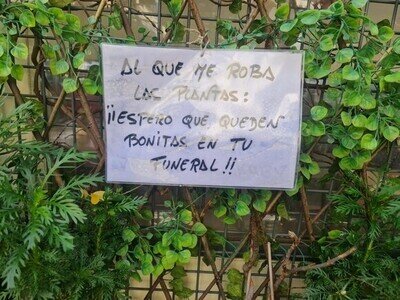 AL QUE ME ROBA
LAS PLANTAS:
¡¡ESPERO QUE QUEDEN
BONITAS EN TU
FUNERAL!!